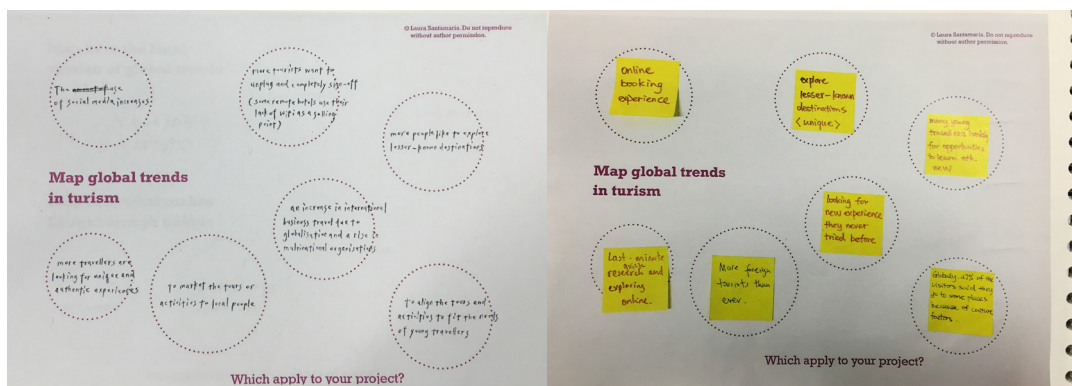 © Laura Santamaria. Do not reproduce
without author permission.
The use
of social media increases
more tourists want to
unplug and completely sign-off
(some remote hotels use their
lack of wifi as a selling
point)
more people like to explore
lesser-known destinations
Map global trends
in turism
an increase in international
business travel due to
globalisation and a rise in
multinational organisations
more travellers are
looking for unique and
authentic experiences
To market the tours or
activities to local people
To align the tours and
activities to fit the needs
of young travellers
Which apply to your project?
© Laura Santamaria. Do not reproduce
without author permission.
online
booking
experience
explore
lesser-known
destinations
<unique>
many young
travellers looking
for opportunities
to learn sth.
new
Map global trends
in turism
looking for
new experience
they never
tried before
Last-minute
research and
exploring
online.
More foreign
tourists than
ever..
Globally, 47% of the
visitors said they
go to some places
because of culture
factors..
Which apply to your project?